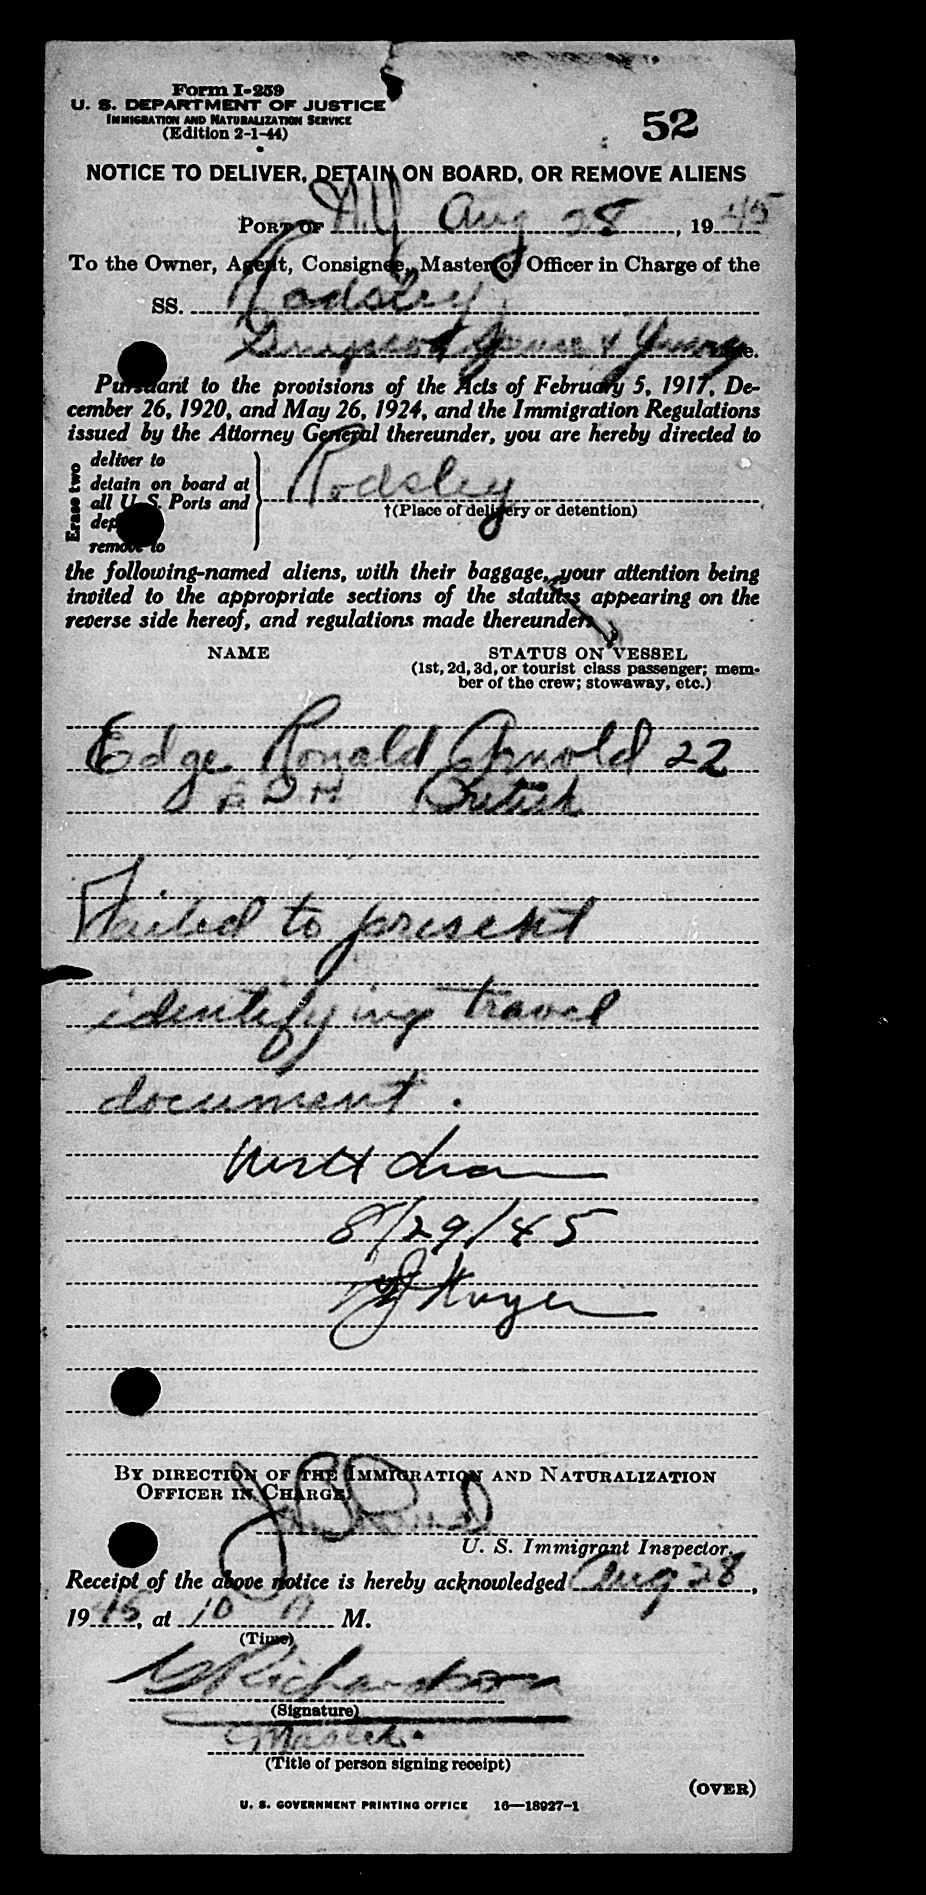 Form I-259
U. S. DEPARTMENT OF JUSTICE
IMMIGRATION AND NATURALIZATION SERVICE
(Edition 2-1-44)
52
NOTICE TO DELIVER, DETAIN ON BOARD, OR REMOVE ALIENS
PORT OF N.Y Aug 28, 1945
To the Owner, Agent, Consignee, Master or Officer in Charge of the
SS. Rodsley
Simpson Spence & Young Line.
Pursuant to the provisions of the Acts of February 5, 1917, De-
cember 26, 1920, and May 26, 1924, and the Immigration Regulations
issued by the Attorney General thereunder, you are hereby directed to
Erase two
deliver to
detain on board at
all U. S. Ports and
remove to
Rodsley
†(Place of delivery or detention)
the following-named aliens, with their baggage, your attention being
invited to the appropriate sections of the statutes appearing on the
reverse side hereof, and regulations made thereunder.
NAME
STATUS ON VESSEL
(1st, 2d, 3d, or tourist class passenger; mem-
ber of the crew; stowaway, etc.)
Edge Ronald Arnold 22
E D H British
Failed to present
identifying travel
document.
8/29/45
BY DIRECTION OF THE IMMIGRATION AND NATURALIZATION
OFFICER IN CHARGE
U. S. Immigrant Inspector.
Receipt of the above notice is hereby acknowledged Aug 28,
1945, at 10 A M.
(Time)
Richardson
(Signature)
Master.
(Title of person signing receipt)
(OVER)
U. S. GOVERNMENT PRINTING OFFICE 16—18927-1